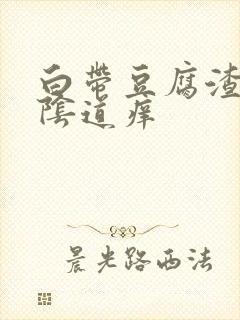 白带豆腐渣
陰道痒
晨光路西法